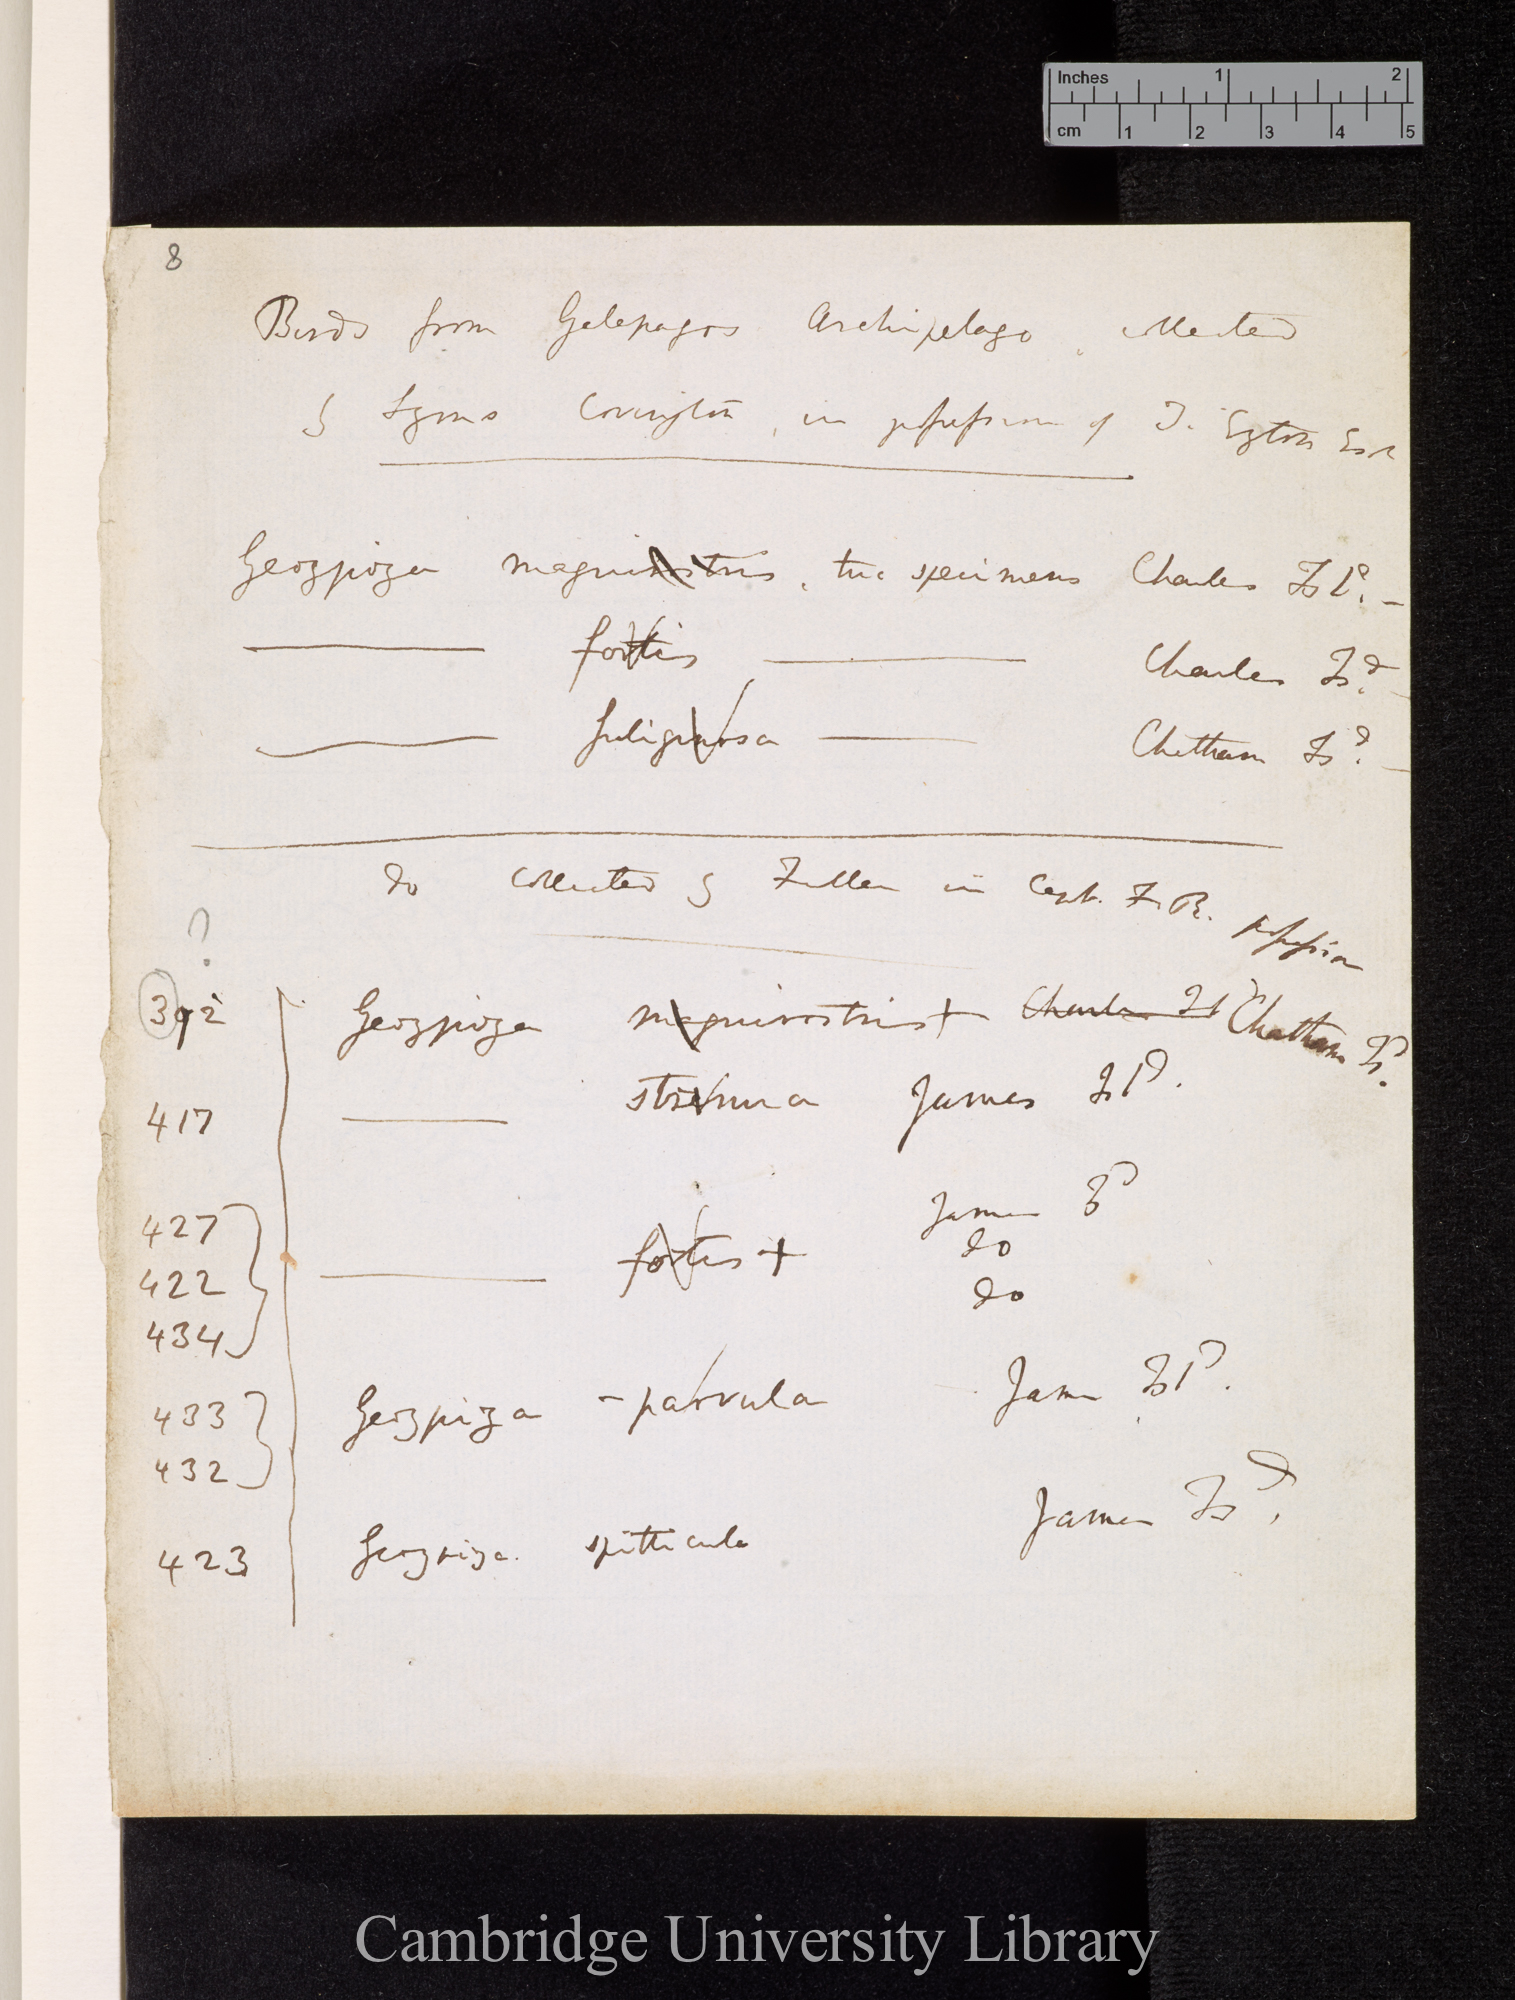 Inches 1 2
cm 1 2 3 4 5
8
Birds from Galapagos Archipelago, collected
by Syms Covington, in possession of T. Eyton Esq
Geospiza magnirostris, two specimens Charles Isd. –
——— fortis ——— Charles Isd. –
——— fuliginosa ——— Chatham Isd. –
do collected by Fuller in Capt. F. R. possession
?
392 Geospiza magnirostris + Charles Isd Chatham Isd.
417 ——— strenua James Isd.
427 James Isd
422 ——— fortis + do
434 do
433 Geospiza – parvula James Isd.
432
423 Geospiza. James Isd.
Cambridge University Library